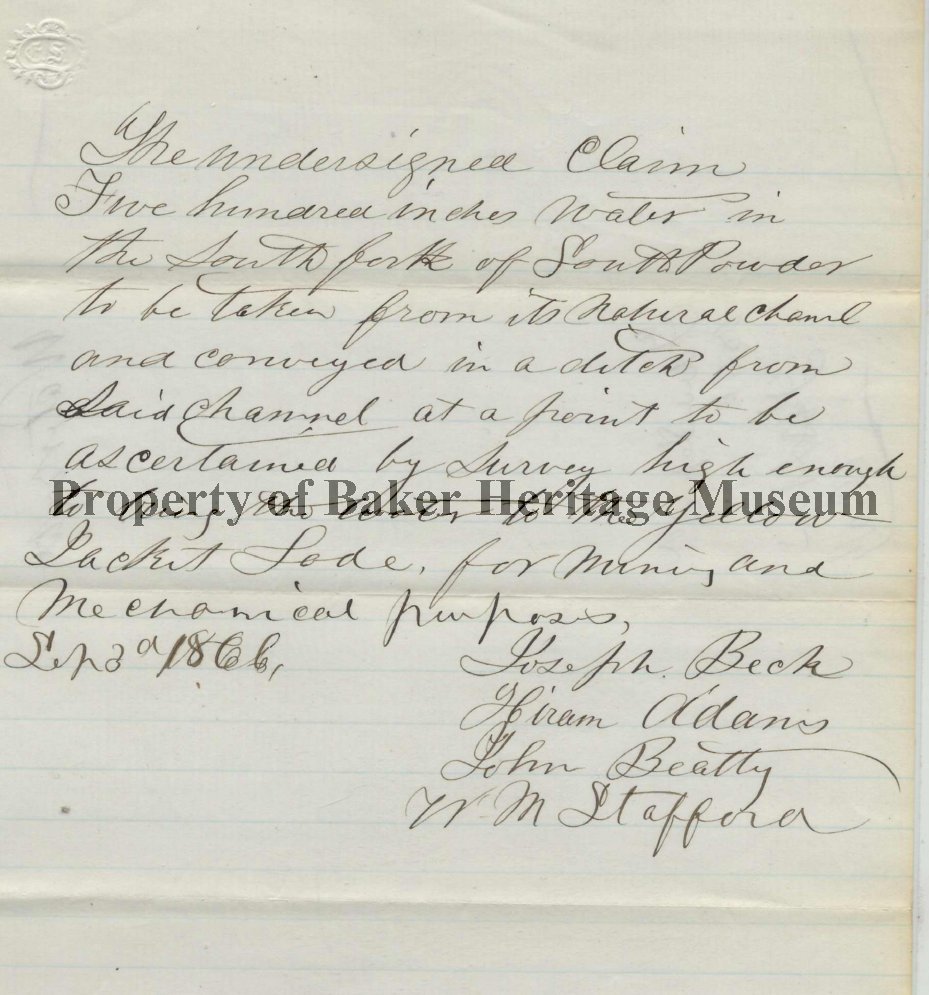 The undersigned Claim
Five hundred inches water in
the South fork of South Powder
to be taken from its natural chanel
and conveyed in a ditch from
Said Channel at a point to be
ascertained by survey high enough
to bring the water to the Yellow
Property of Baker Heritage Museum
Jacket Lode, for mining and
Mechanical purposes,
Sep 3d 1866,
Joseph Beck
Hiram Adams
John Beatty
W M Stafford